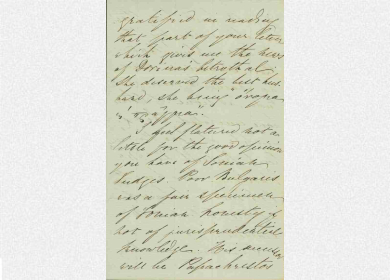 gratified in reading
that part of your letter
which gives us the news
of Dorina's betrothal
She deserved the best hus
band, she being
"I feel flattered not a
little for the good opinion
you have of Ionian
Judges. Poor Bulgaris
was a fair specimen
of Ionian honesty &
not of jurisprudential
knowledge. His
will be Papachristos